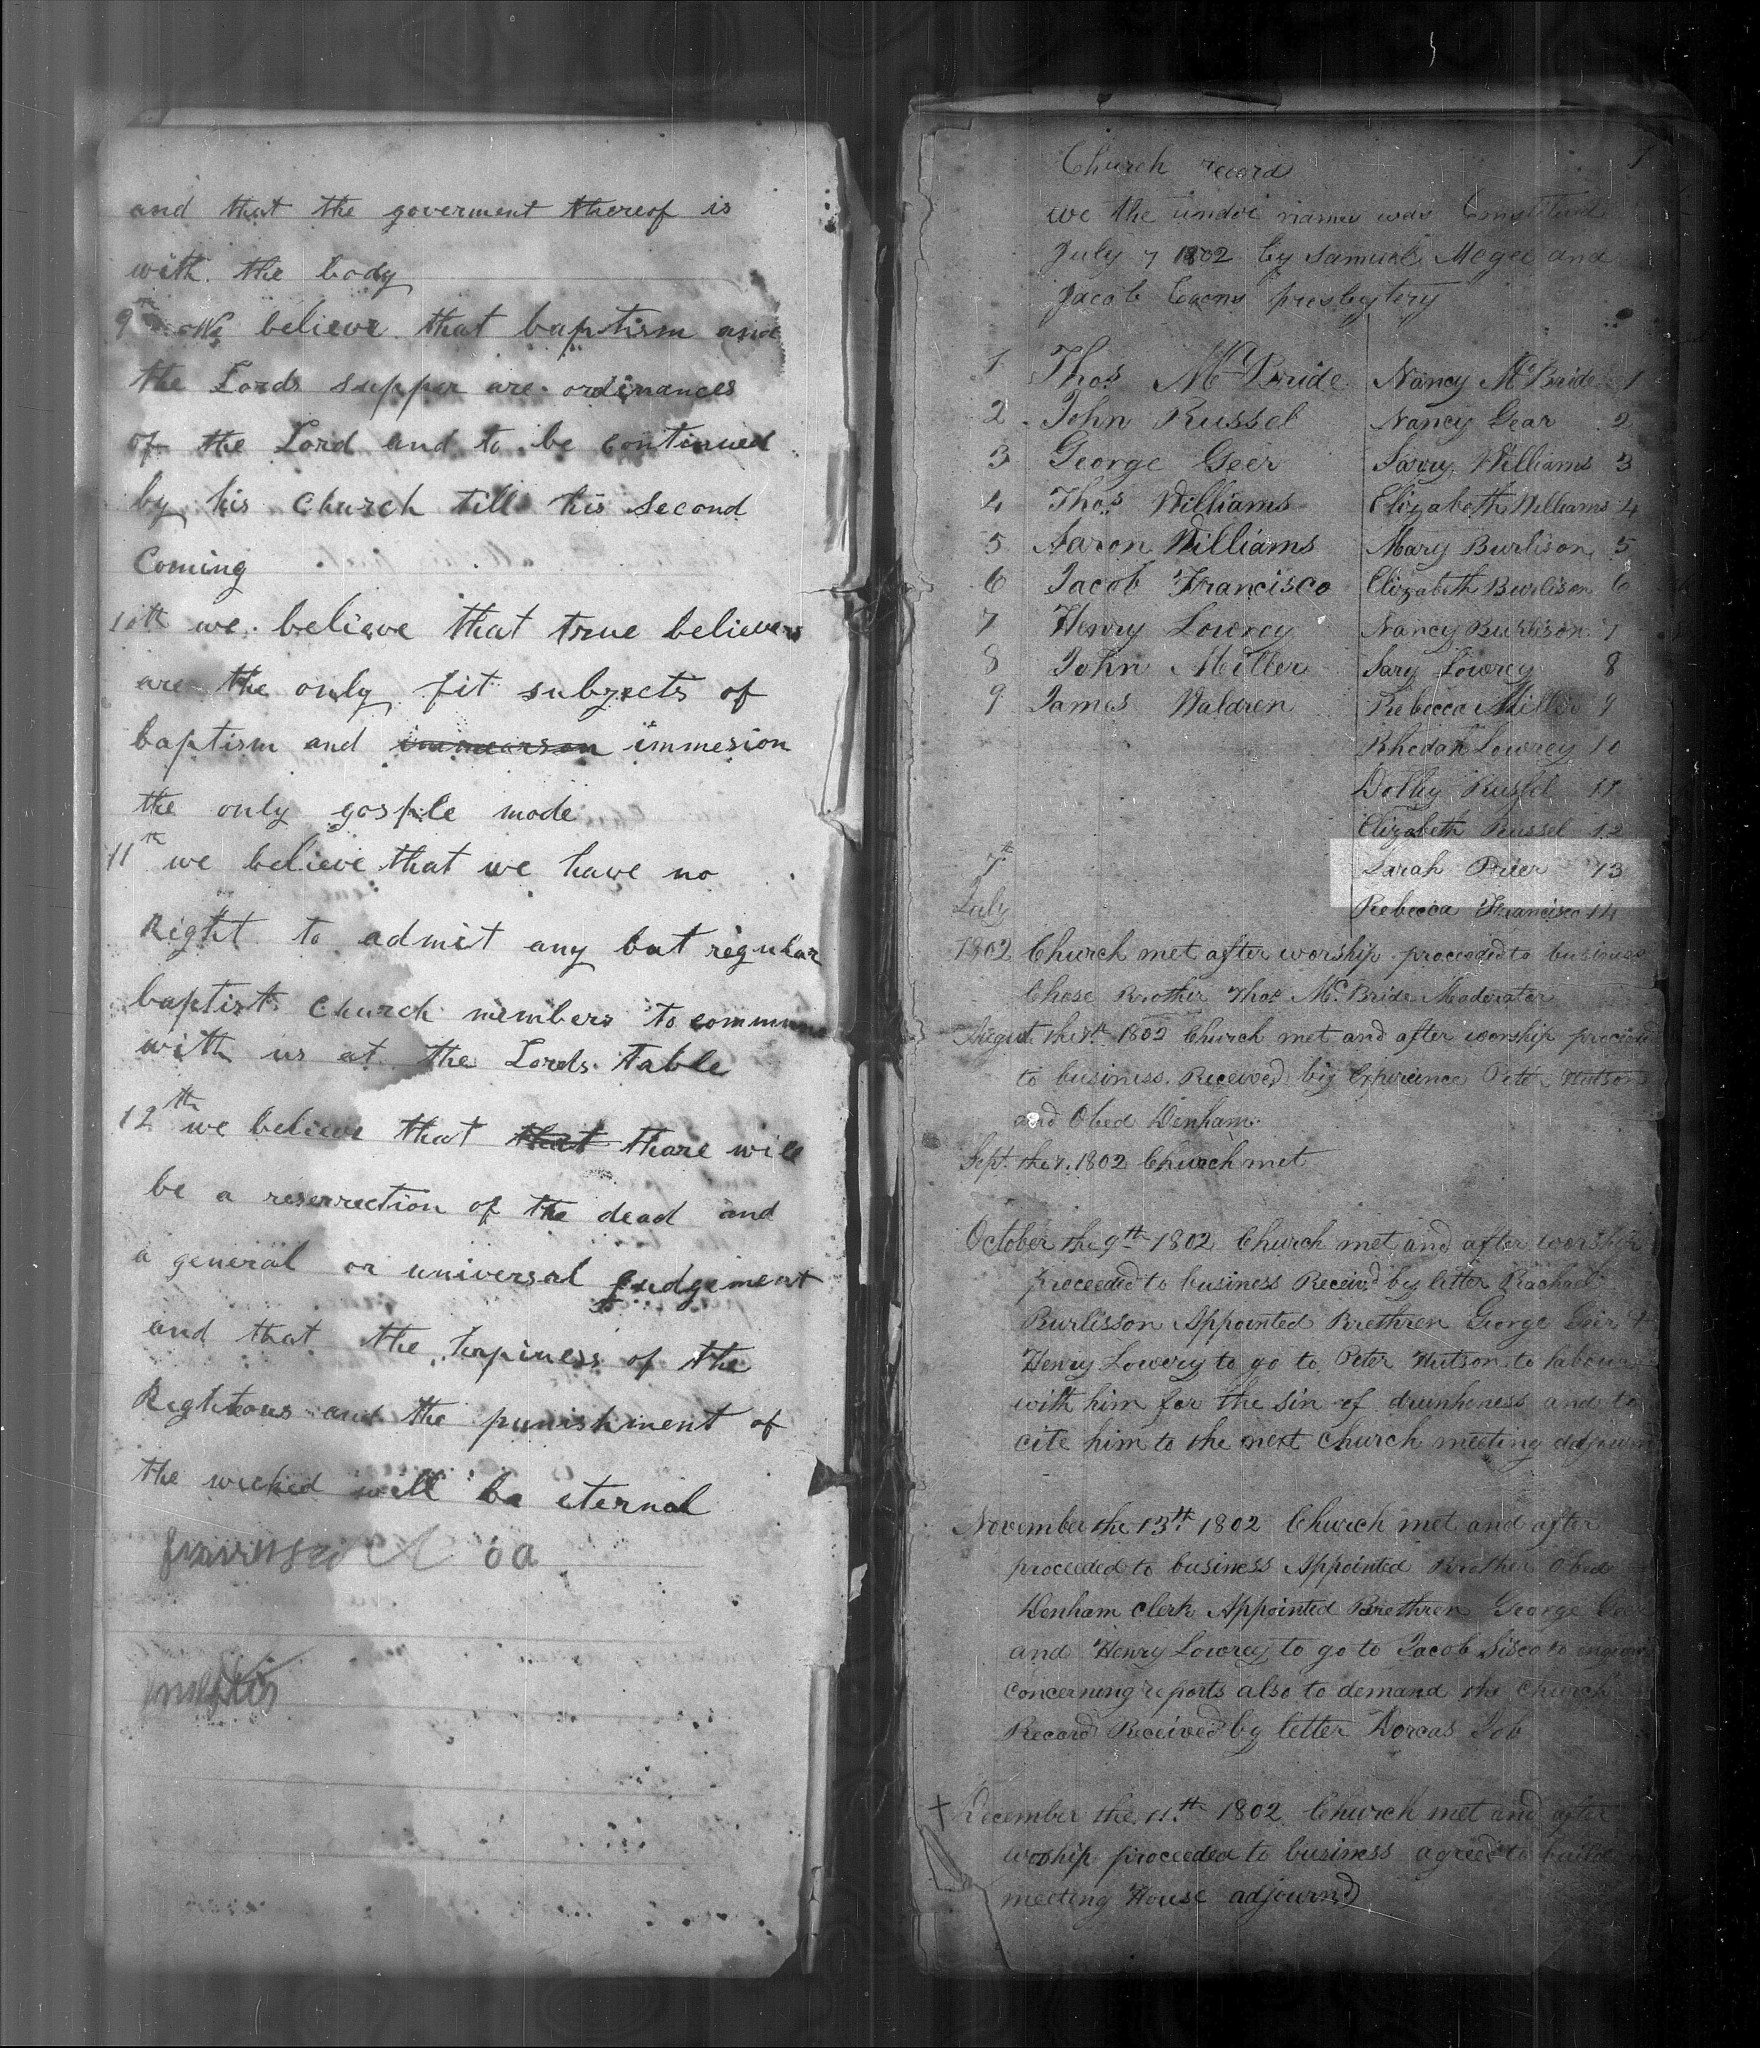 and that the goverment thereof is
with the body
9th We believe that baptism and
the Lords supper are ordinances
of the Lord and to be continued
by his Church till his second
Coming
10th we believe that true believers
are the only fit subjects of
baptism and immesion
the only gosple mode
11th we believe that we have no
Right to admit any but regular
baptist Church members to commune
with us at the Lords table
12th we believe that that thare will
be a reserrection of the dead and
a general or universal Judgement
and that the hapiness of the
Righteous and the punishment of
the wicked will be eternal
1
Church record
we the under names was Constituted
July 7 1802 by Samuel Mcgee and
Jacob presbytery
1 Thos McBride Nancy McBride 1
2 John Russel Nancy Gear 2
3 George Geer Sarry Williams 3
4 Thos Williams Elizabeth Williams 4
5 Aaron Williams Mary Burlison 5
6 Jacob Francisco Elizabeth Burlison 6
7 Henry Lowrey Nancy Burlison 7
8 John Miller Sary Lowrey 8
9 James Waldren Rebecca Miller 9
Rhodah Lowrey 10
Dolly Russel 11
Elizabeth Russel 12
7th Sarah Prier 13
July Rebecca Francisco 14
1802 Church met after worship proceeded to business
Chose Brother Thos McBride Moderater
August the 7th 1802 Church met and after worship proceded
to business Received by Experience Peter Hutson
and Obed Denham
Sept. the 7. 1802 Church met
October the 9th 1802 Church met and after worship
proceeded to business Receivd by letter Rachael
Burlisson Appointed Brethren George Geir &
Henry Lowery to go to Peter Hutson to labour
with him for the sin of drunkness and to
cite him to the next church meeting adjournd
November the 13th 1802 Church met and after
proceeded to business Appointed Brother Obed
Denham clerk Appointed Brethren George Geer
and Henry Lowrey to go to Jacob Sisco to enquire
concerning reports also to demand the Church
Record Received by letter Dorcas Job
+ December the 11th 1802 Church met and after
worship proceeded to business agreed to build a
meeting House adjournd